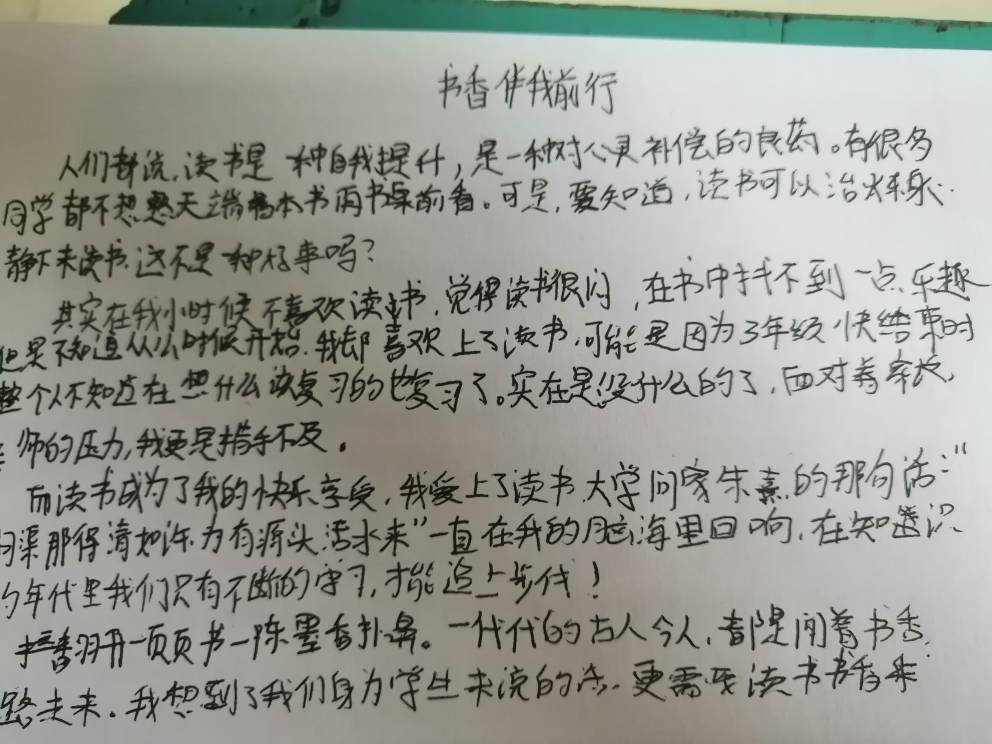 书香伴我前行
人们都说,读书是一种自我提升,是一种对心灵补偿的良药。有很多
同学都不想整天端本书两书桌前看。可是,要知道,读书可以治
静下来读书,这不是一种好事吗?
其实在我小时候不喜欢读书,觉得读书很闷,在书中找不到一点乐趣
但是不知道从什么时候开始,我却喜欢上了读书,可能是因为3年级快结束时
整个人不知道在想什么该复习的也复习了。实在是没什么的了,面对着家长,
师的压力,我更是措手不及。
而读书成为了我的快乐享受,我爱上了读书,大学问家朱熹的那句话:“
问渠那得清如许,为有源头活水来”一直在我的脑海里回响,在知识
的年代里我们只有不断的学习,才能追上步伐!
翻开一页页书一阵墨香扑鼻。一代代的古人今人,都是闻着书香
路走来。我想到了我们身为学生来说的话,更需要读书书香来